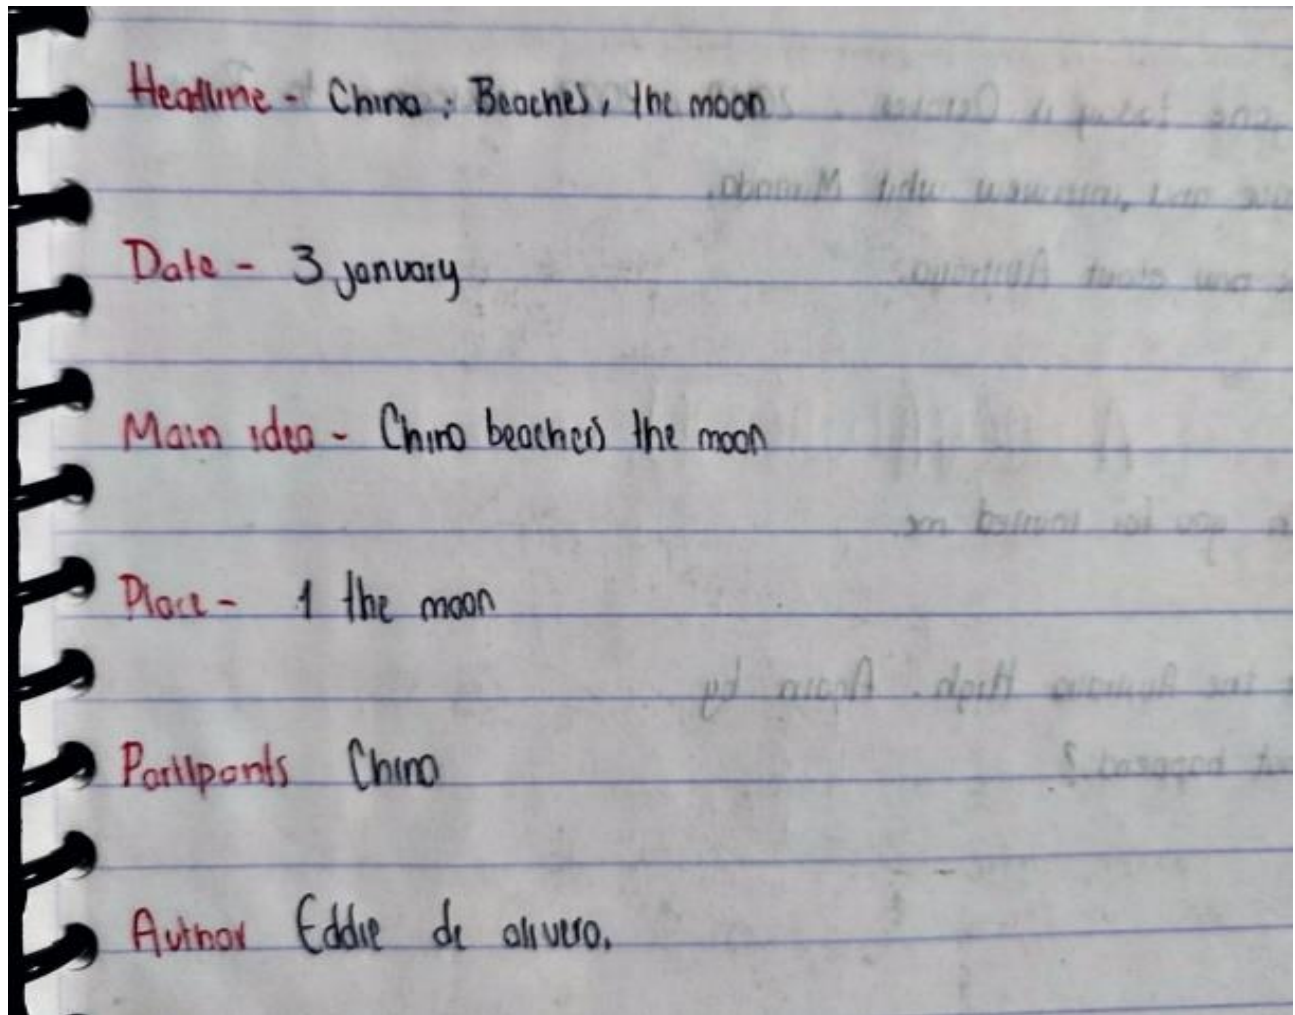 Headline - China: Beaches, the moon
Date - 3 january
Main idea - China beachers the moon
Place - 1 the moon
Partipants China
Author Eddie de olivero.